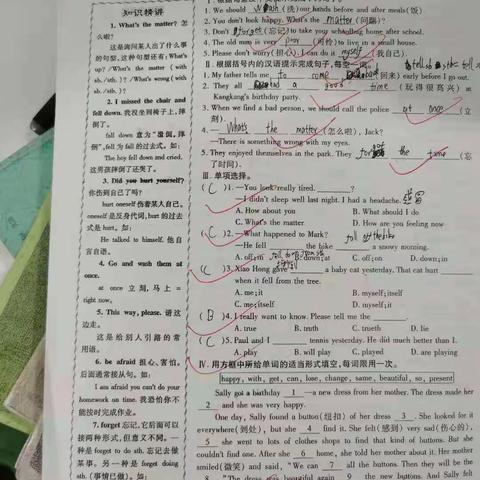 知识精讲
1. What's the matter? 怎
么啦?
这是询问某人出了什么事
的句型,这种句型还有:What's
up? /What's the matter ( with
sb. /sth. )? /What's wrong ( with
sb. /sth. )?
2. I missed the chair and
fell down. 我没坐到椅子上,摔
倒了。
fall down 意为"滑倒,摔
倒",fell 为 fall 的过去式。如:
The boy fell down and cried.
这男孩摔倒了还哭了。
3. Did you hurt yourself?
你伤到自己了吗?
hurt oneself 伤着某人自己。
oneself 是反身代词,hurt 的过去
式是 hurt。如:
He talked to himself. 他自
言自语。
4. Go and wash them at
once.
at once 立刻,马上 =
right now。
5. This way, please. 请这
边走。
这是给别人引路的常
用语。
6. be afraid 担心、害怕。
后面通常接从句。如:
I am afraid you can't do your
homework on time. 我恐怕你不
能按时完成作业。
7. forget 忘记,它后面可以
接两种形式,但意义不同。一
种是 forget to do sth. 忘记去做
某事。另一种是 forget doing
sth. (事情已做)。如:
1. We should wash (洗) our hands before and after meals(饭)
2. You don't look happy. What's the matter (问题)?
3. Don't forget (忘记) to take your schoolbag home after school.
4. The old man is very (可怜) to live in a small house.
5. Please don't worry! I can do it myself (我自己)
Ⅱ. 根据括号内的汉语提示完成句子,每空一词。
1. My father tells me to come back (回来) early before I go out.
2. They all had a good time (玩得很高兴) at
Kangkang's birthday party.
3. When we find a bad person, we should call the police at once (立
刻).
4. — What's the matter (怎么啦), Jack?
—There is something wrong with my eyes.
5. They enjoyed themselves in the park. They forgot the time (忘
了时间).
Ⅲ. 单项选择。
( C ) 1. —You look really tired. ________?
—I didn't sleep well last night. I had a headache.
A. How about you B. What should I do
C. What's the matter D. How are you feeling now
( C ) 2. —What happened to Mark? fall off the bike
—He fell ________ the bike ________ a snowy morning.
A. off;in B. down;at C. off;on D. down;in
( C ) 3. Xiao Hong gave ________ a baby cat yesterday. That cat hurt ________
when it fell from the tree.
A. me;it B. myself;itself
C. me;itself D. myself;it
( B ) 4. I really want to know. Please tell me the ________.
A. true B. truth C. trueth D. lie
( C ) 5. Paul and I ________ tennis yesterday. He did much better than I.
A. play B. will play C. played D. are playing
Ⅳ. 用方框中所给单词的适当形式填空,每词限用一次。
happy, with, get, can, lose, change, same, beautiful, so, present
Sally got a birthday 1 —a new dress from her mother. The dress made her
2 and she was very happy.
One day, Sally found a button(纽扣) of her dress 3 . She looked for it
everywhere(到处), but she 4 find it. She felt(感到) very sad(伤心的).
5 she went to lots of clothes shops to find that kind of buttons. But she
couldn't find one. After she 6 home, she told her mother about it. Her mother
smiled(微笑) and said, "We can 7 all the buttons. Then they will be the
8 ." The dress was beautiful again 9 the new buttons. And Sally felt